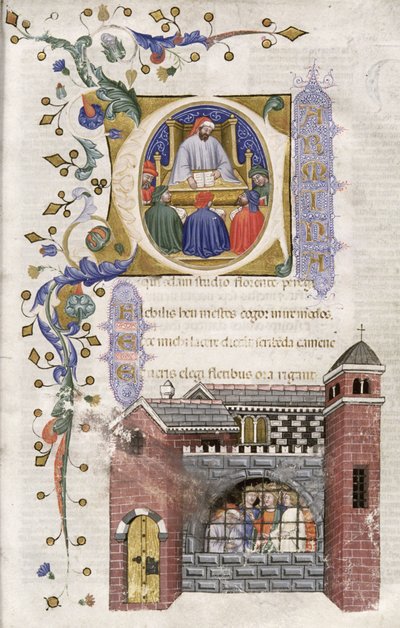 CARMINA
qui studio florente peregi
Flebilis heu mestos cogor inire modos
Ecce michi lacere dictant scribēda camene
Et ueris elegi fletibus ora rigant